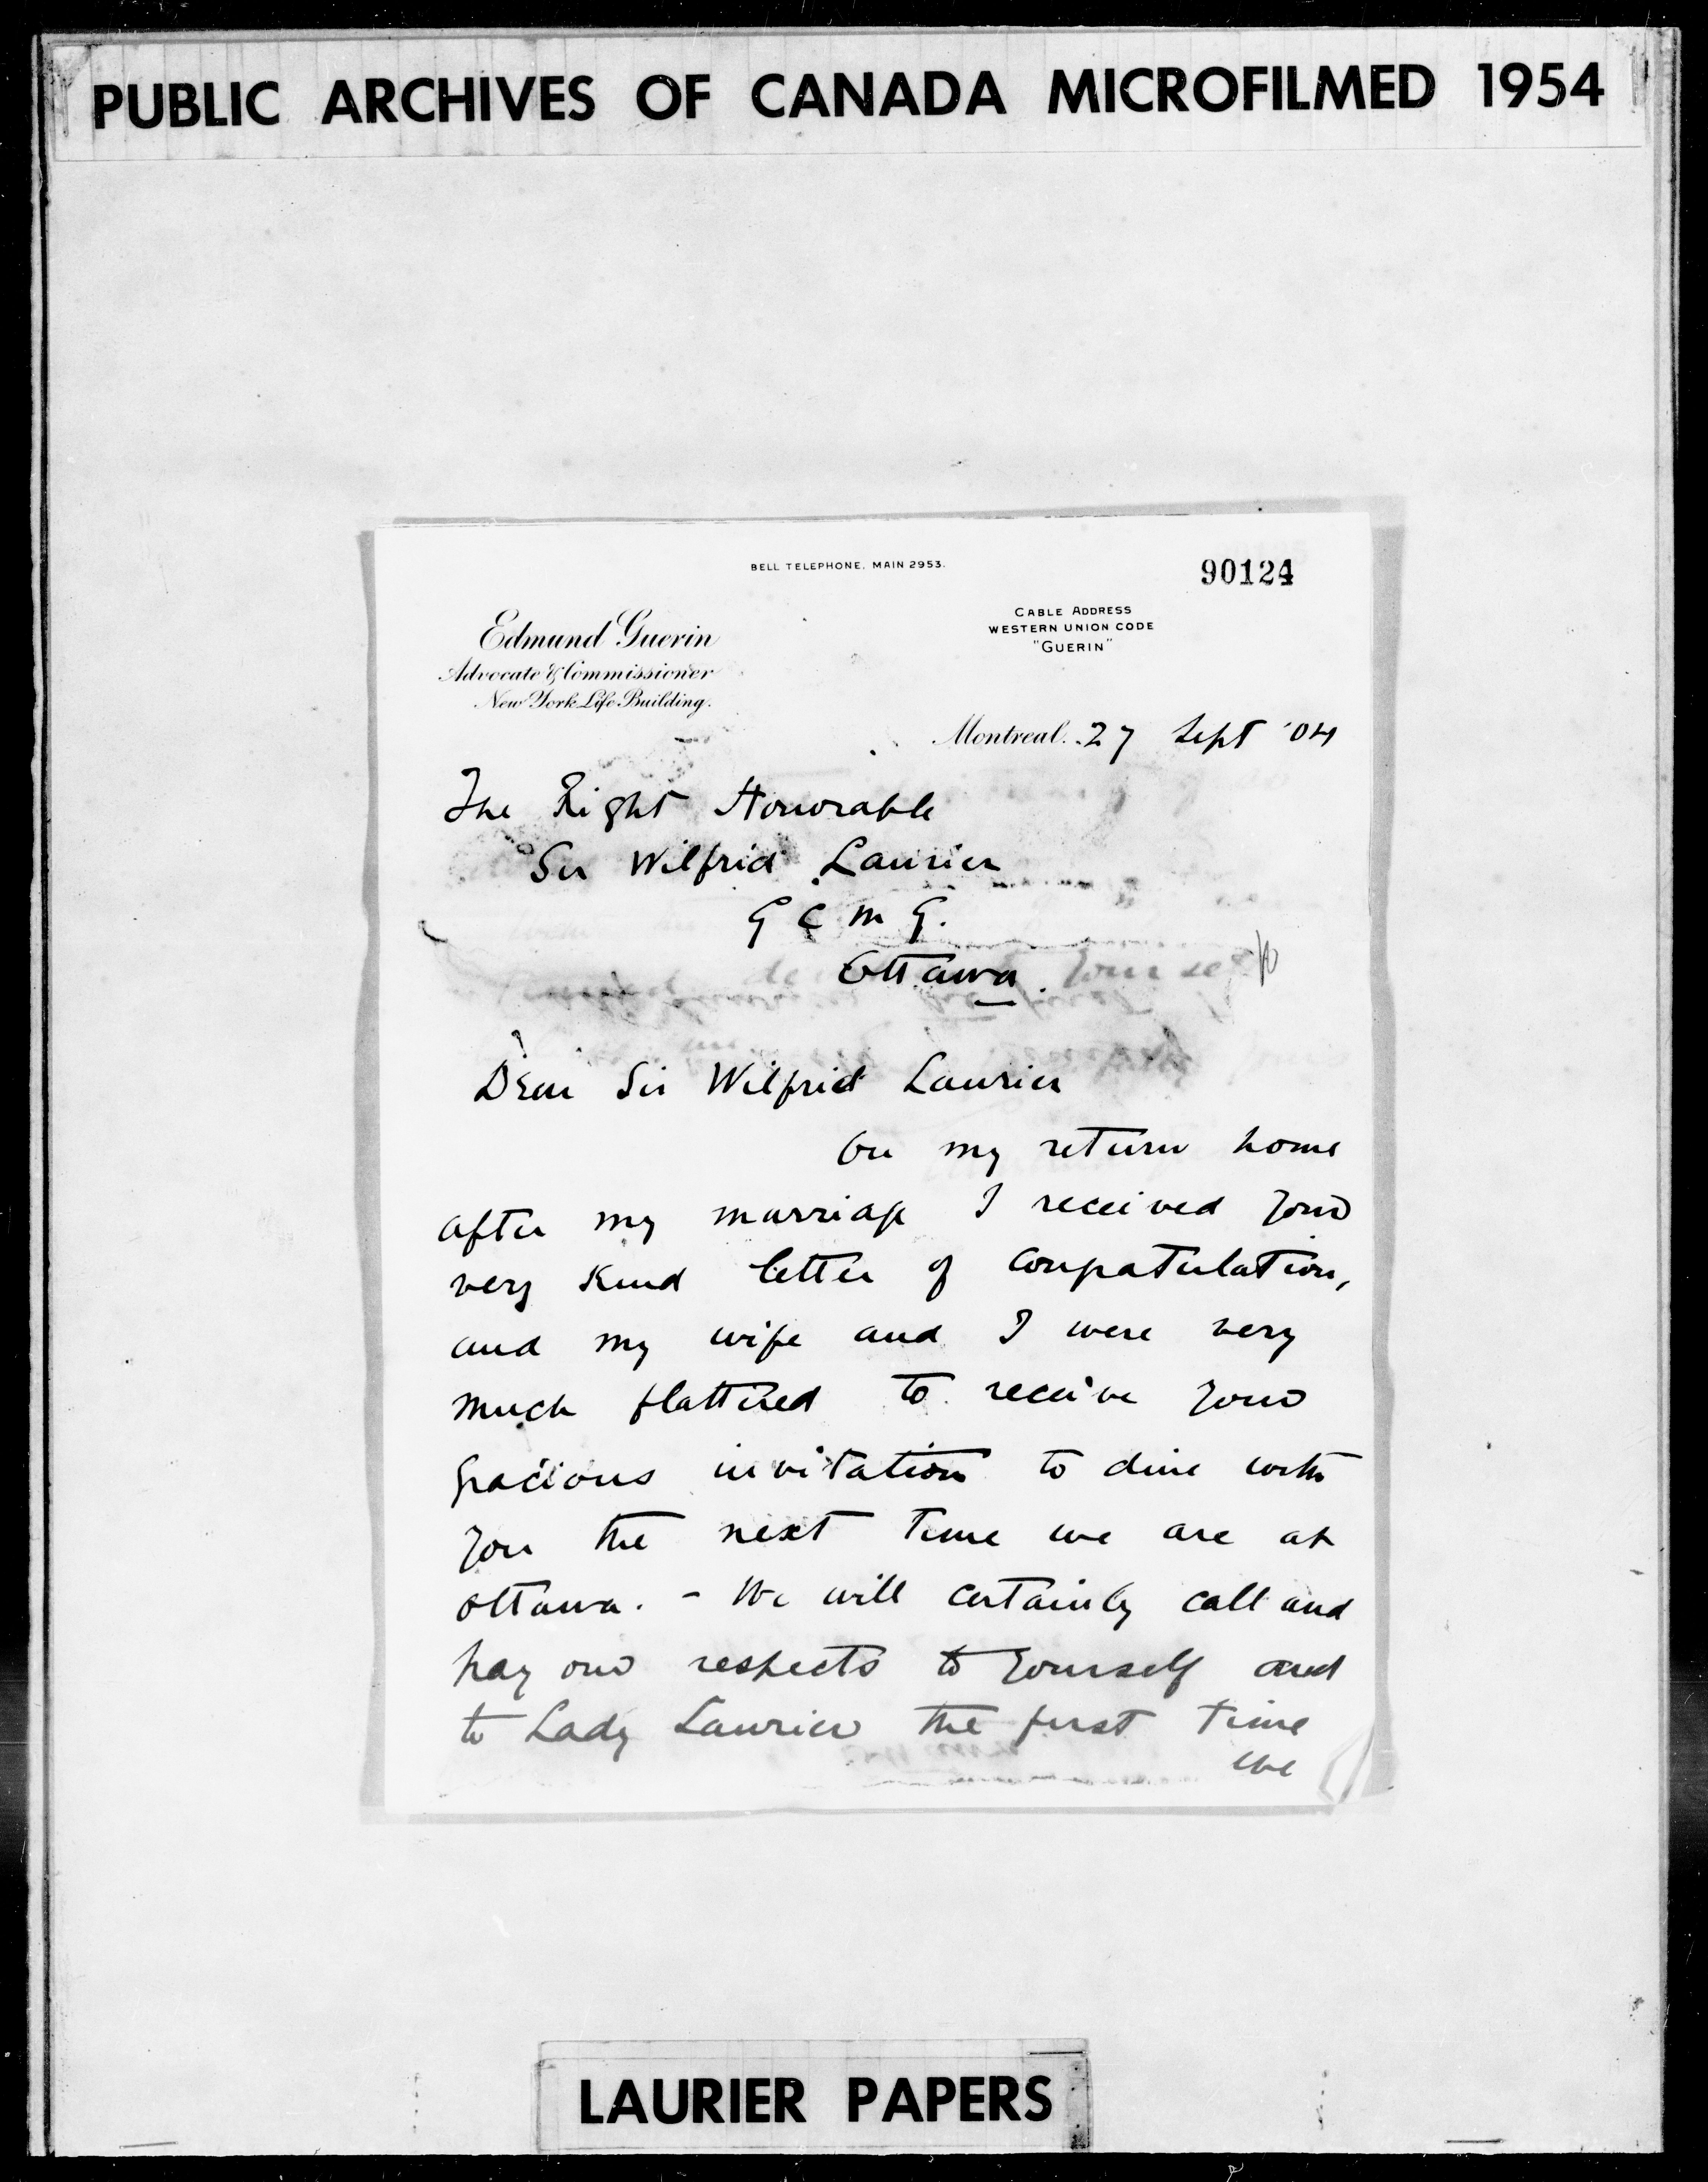 PUBLIC ARCHIVES OF CANADA MICROFILMED 1954
BELL TELEPHONE. MAIN 2953.
90124
Edmund Guerin
Advocate & Commissioner
New York Life Building.
CABLE ADDRESS
WESTERN UNION CODE
"GUERIN"
Montreal. 27 Sept '04
The Right Honorable
Sir Wilfrid Laurier
G C M G.
Ottawa.
Dear Sir Wilfrid Laurier
On my return home
after my marriage I received your
very kind letter of congratulation,
and my wife and I were very
much flattered to receive your
gracious invitation to dine with
you the next time we are at
Ottawa. - We will certainly call and
pay our respects to yourself and
to Lady Laurier the first time
we
LAURIER PAPERS